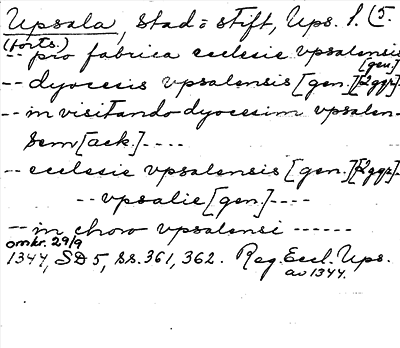 Upsala, stad o stift, Ups. l. (5.
(forts.)
-- pro fabrica ecclesie vpsalensis [gen.]
-- dyocesis vpsalensis [gen.][2ggr]-
-- in visitando dyocesim vpsalen-
sem [ack.]----
-- ecclesie vpsalensis [gen.][2ggr]-
-- vpsalie [gen.]----
-- in choro vpsalensi ------
omkr. 29/9
1344, SD 5, ss. 361, 362. Reg. Eccl. Ups.
av 1344.